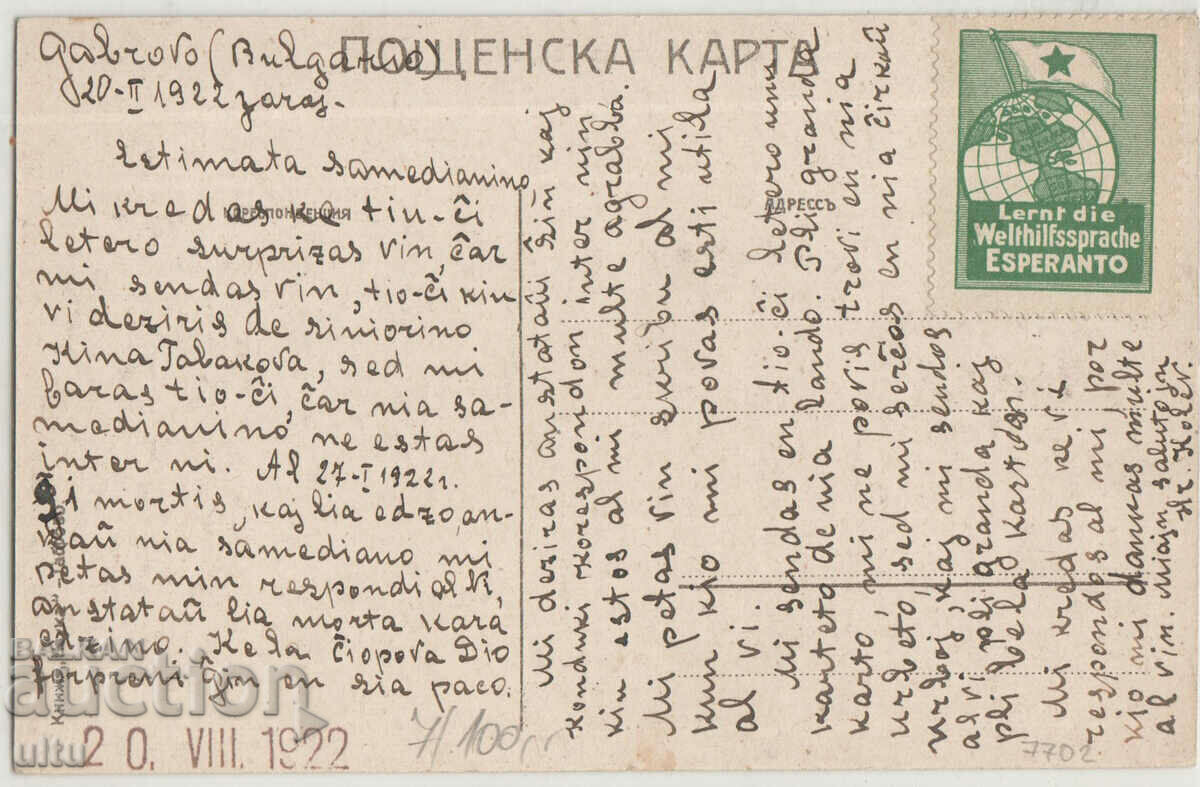 ПОЩЕНСКА КАРТА
Gabrovo (Bulgario)
20-II 1922 jaroj.
Estimata samedianino,
КОРЕСПОНДЕНЦИЯ
Mi kredas ke tiu-ĉi
letero surprizas vin, ĉar
mi sendas vin, tio-ĉi kiu
vi deziris de siniorino
Kina Tabakova, sed mi
faras tio-ĉi, ĉar nia sa-
medianino ne estas
inter ni. Al 27-I 1922 r.
ŝi mortis, kaj lia edzo, an-
kaŭ nia samediano mi
petas min respondi al vi,
anstataŭ lia morta kara
edzino. Ke la ĉiopova Dio
forprenu ĝin en sia paco.
Mi deziras anstataŭ ŝin kaj
konduki korespondon inter nin
kiu estos al mi multe agrabla.
Mi petas vin skribu al mi
kun kio mi povas esti utila
al vi.
Mi sendas en tio-ĉi letero unu
karteto de nia lando. Pli granda
karto, mi ne povis trovi en nia
urbeto, sed mi serĉos en nia ĉirkaŭ
urboj, kaj mi sendos
al vi pli granda kaj
pli bela kartoj.
Mi kredas ke vi
respondos al mi por
kio mi dankas multe
al vin. Miajn salutojn
Hr. Kolev.
АДРЕССЪ
Lernt die
Welthilfssprache
ESPERANTO
Книжар
BALKAM
auction
ultu
20. VIII. 1922
7/100
7702